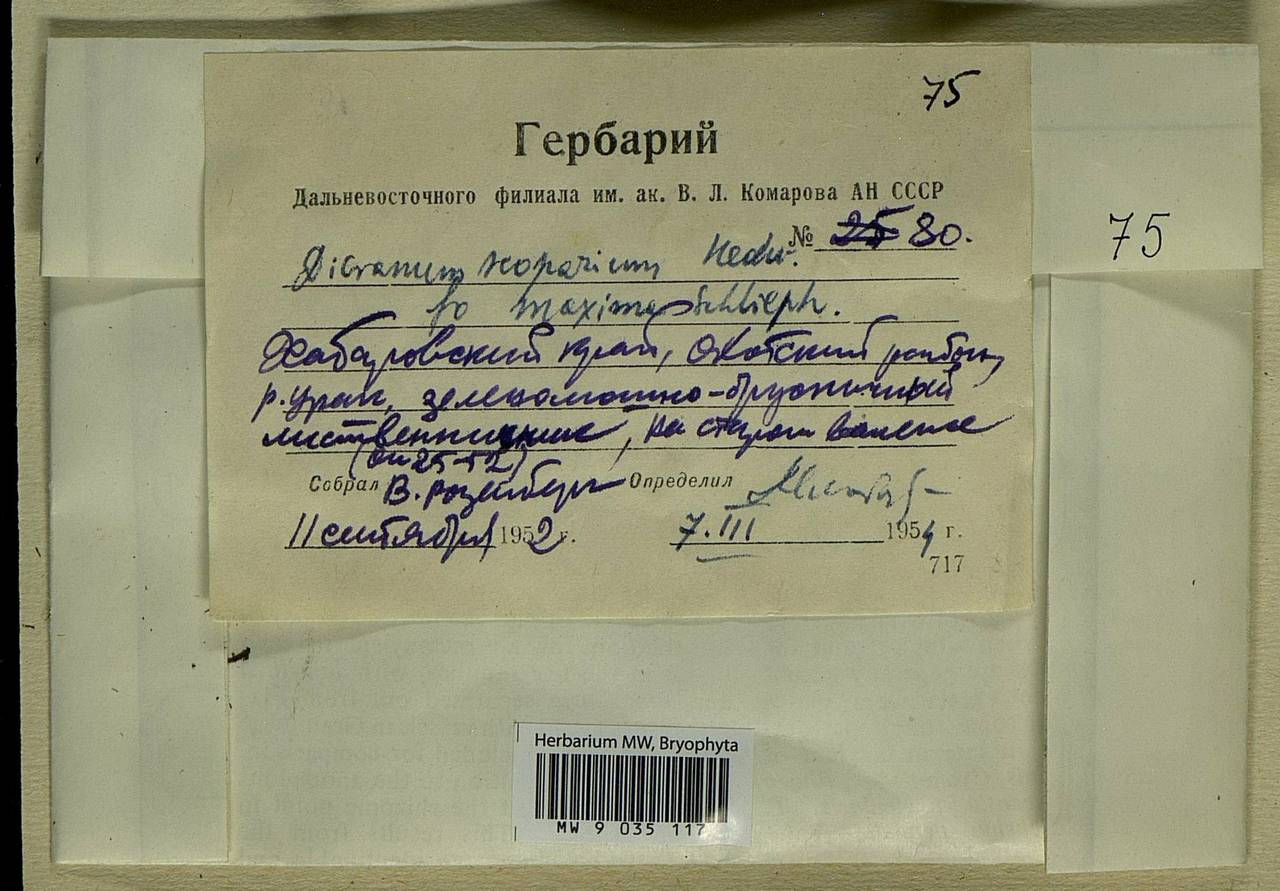 75
Гербарий
Дальневосточного филиала им. ак. В. Л. Комарова АН СССР
№ 25 80.
Dicranum scoparium Hedw.
fo maxima Schlieph.
Хабаровский край, Охотский район,
р. Урак, зеленомошно-брусничный
лиственничник, на старом валеже
(оп 25-52)
Собрал В. Розенберг Определил
11 сентября 1952 г. 7.III 1954 г.
717
75
Herbarium MW, Bryophyta
MW 9 035 117